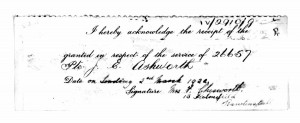 I hereby acknowledge the receipt of the
granted in respect of the service of 26657
Pte. J. E. Ashworth
Date on 2nd March 1922
Signature Mrs Ashworth